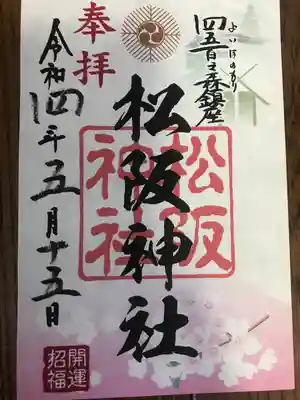 四五百之森鎮座
よいほのもり
奉拝
松阪神社
松阪神社
令和四年五月十五日
開運招福